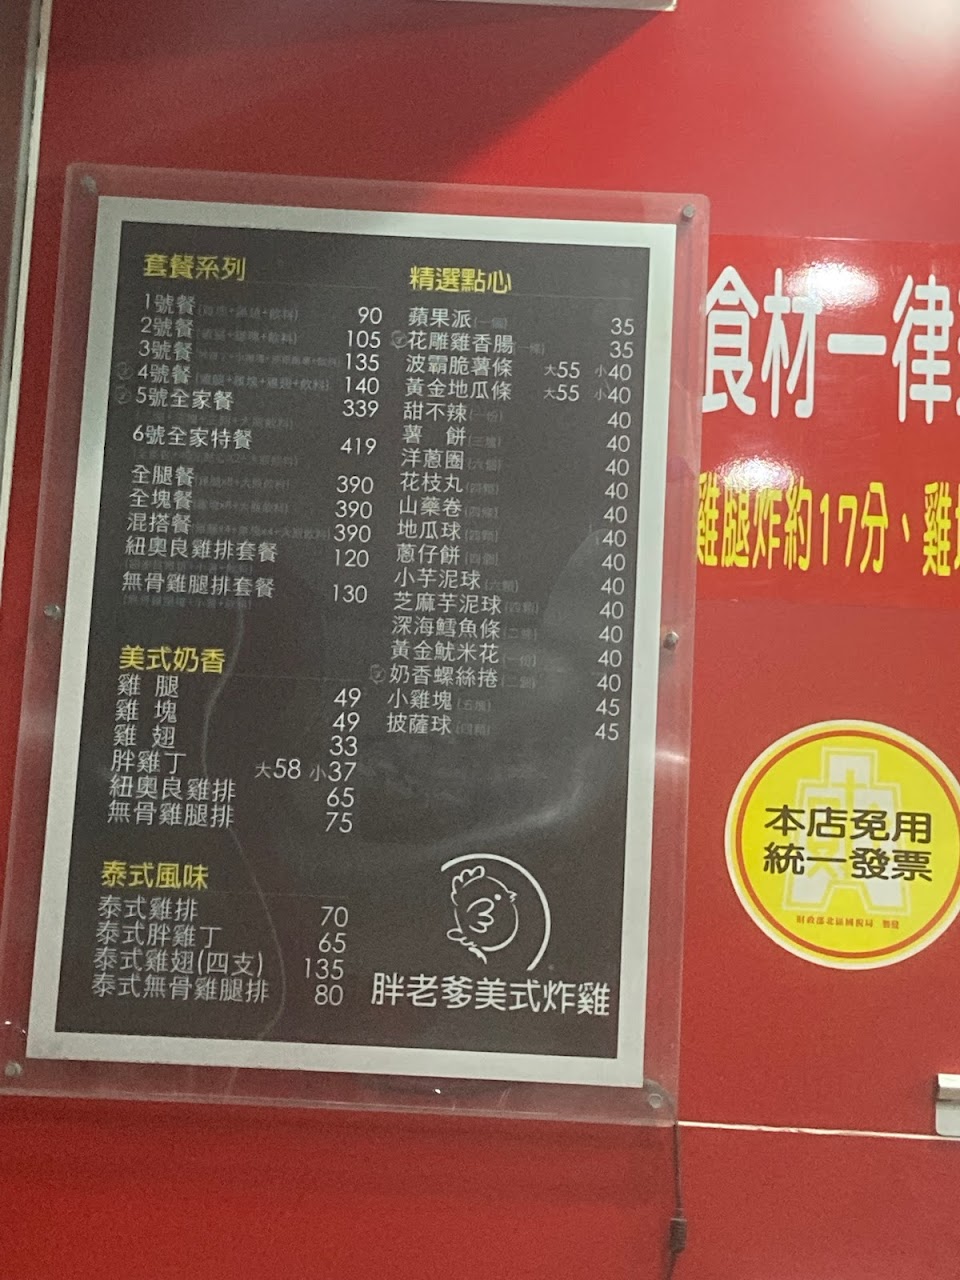 套餐系列
1號餐 90
2號餐 105
3號餐 135
4號餐 140
5號全家餐 339
6號全家特餐 419
全腿餐 390
全塊餐 390
混搭餐 390
紐奧良雞排套餐 120
無骨雞腿排套餐 130
美式奶香
雞 腿 49
雞 塊 49
雞 翅 33
胖雞丁 大58 小37
紐奧良雞排 65
無骨雞腿排 75
泰式風味
泰式雞排 70
泰式胖雞丁 65
泰式雞翅(四支) 135
泰式無骨雞腿排 80
精選點心
蘋果派 35
花雕雞香腸 35
波霸脆薯條 大55 小40
黃金地瓜條 大55 小40
甜不辣 40
薯 餅 40
洋蔥圈 40
花枝丸 40
山藥卷 40
地瓜球 40
蔥仔餅 40
小芋泥球 40
芝麻芋泥球 40
深海鱈魚條 40
黃金魷米花 40
奶香螺絲捲 40
小雞塊 45
披薩球 45
胖老爹美式炸雞
食材一律
雞腿炸約17分、雞
本店免用
統一發票
財政部北區國稅局